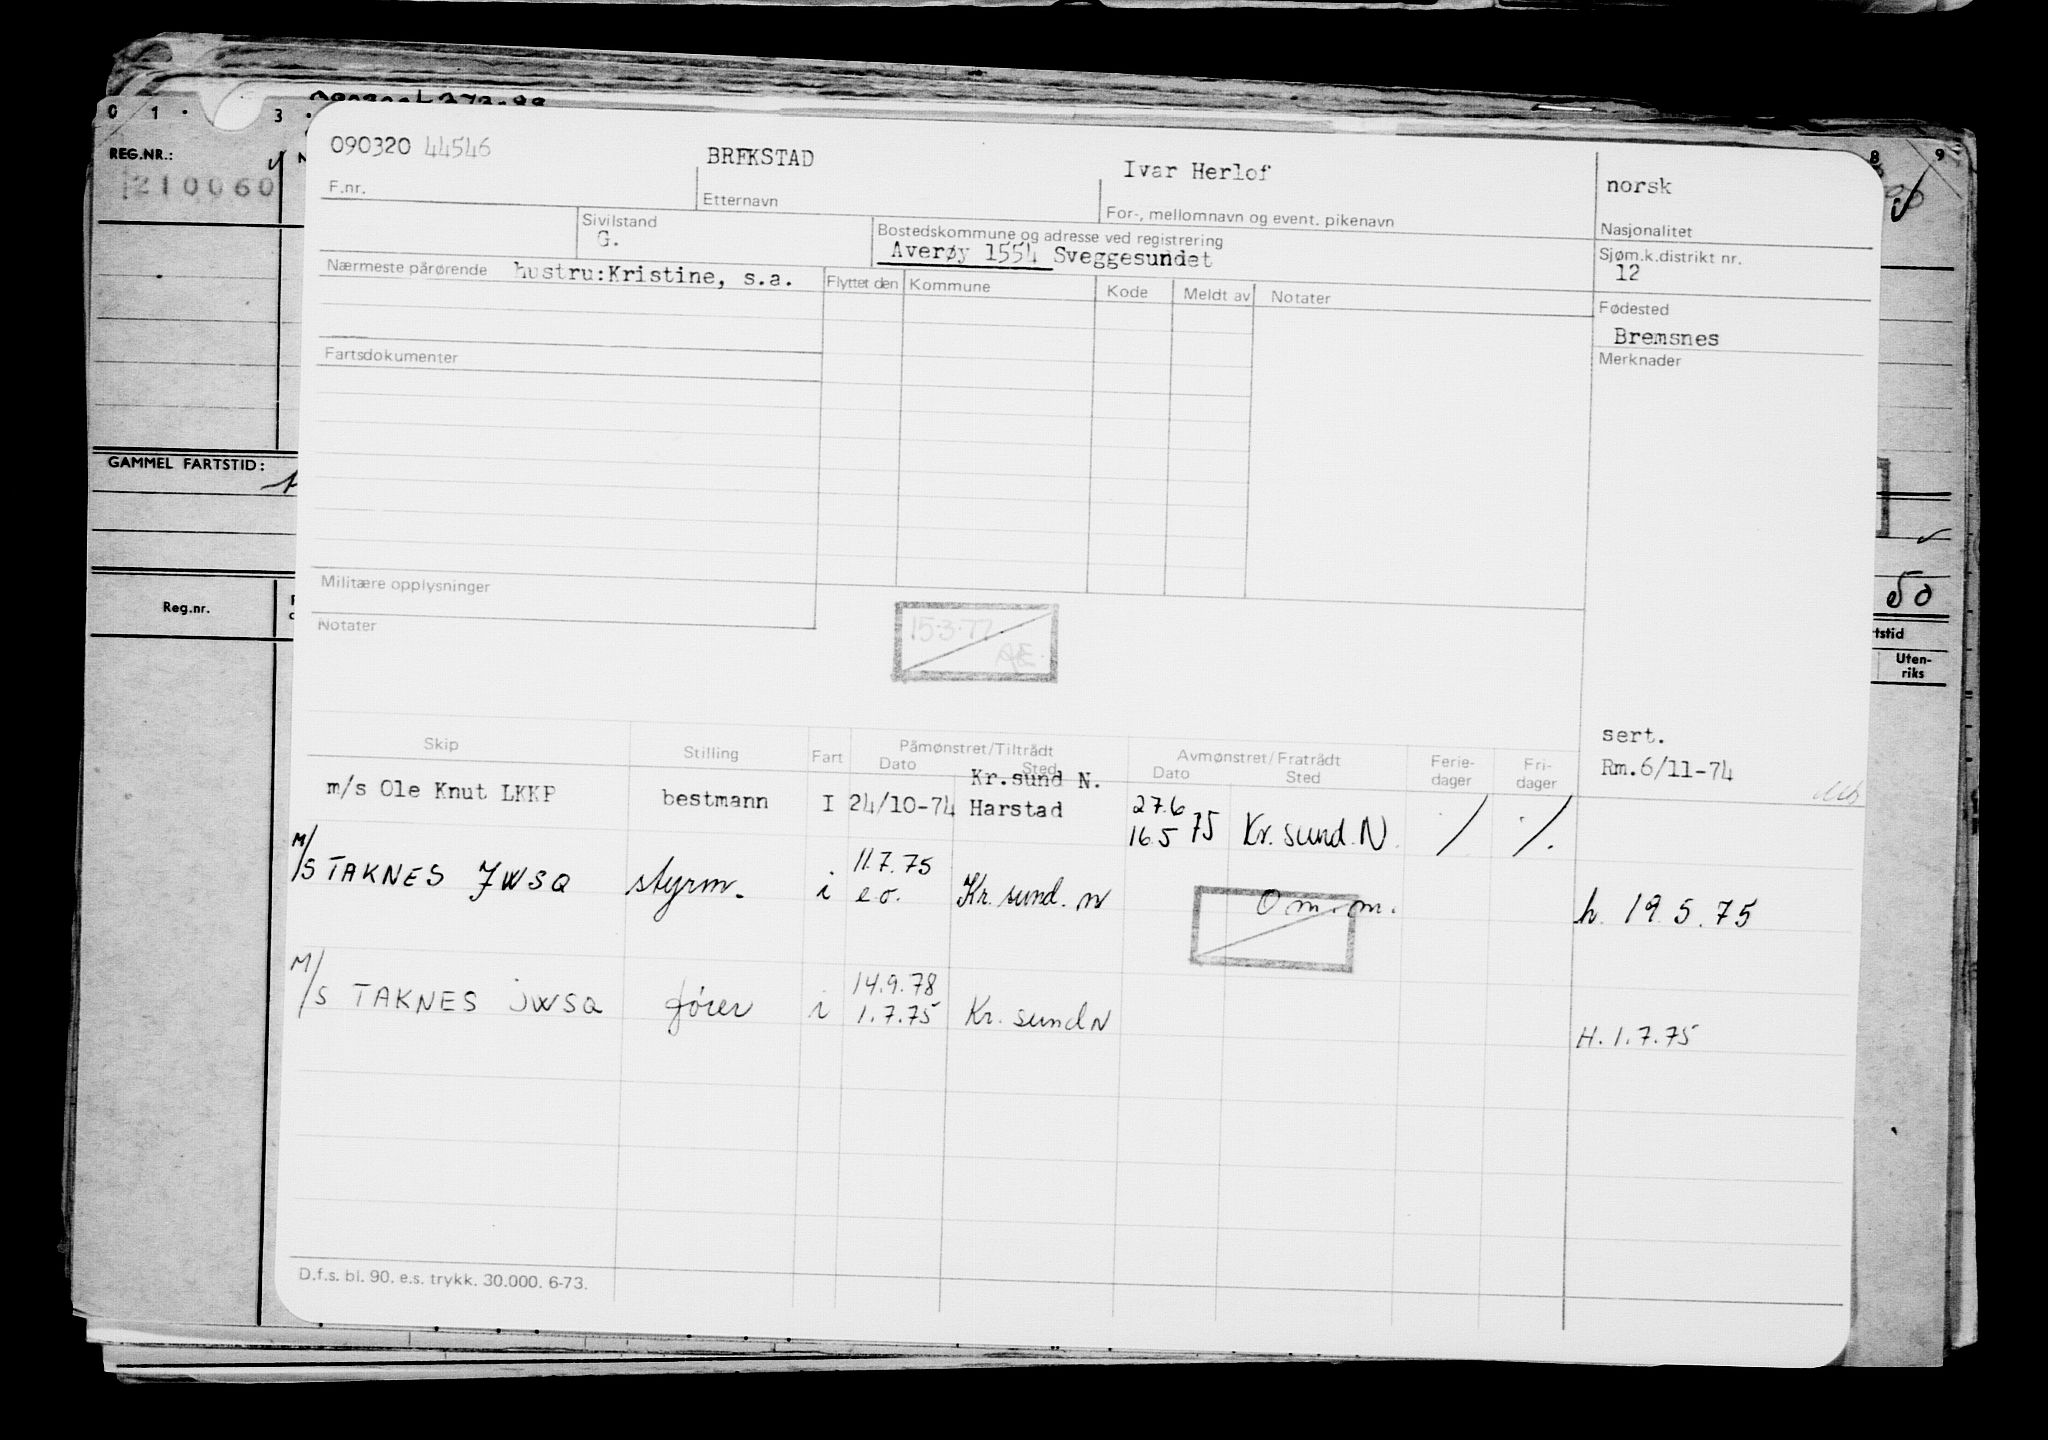 0 1 . 3 . 8 9
REG.NR.:
210060
GAMMEL FARTSTID:
Reg.nr.
50
tstid
Uten-
riks
090320 44546
F.nr.
BREKSTAD
Etternavn
Ivar Herlof
For-, mellomnavn og event. pikenavn
norsk
Nasjonalitet
Sivilstand
G.
Bostedskommune og adresse ved registrering
Averøy 1554 Sveggesundet
Sjøm.k.distrikt nr.
12
Nærmeste pårørende hustru:Kristine, s.a.
Flyttet den Kommune Kode Meldt av Notater
Fødested
Bremsnes
Merknader
Fartsdokumenter
Militære opplysninger
Notater
15.3.77
Skip Stilling Fart Påmønstret/Tiltrådt Avmønstret/Fratrådt Ferie- Fri-
Dato Sted Dato Sted dager dager
sert.
Rm.6/11-74
Kr.sund N.
m/s Ole Knut LKKP bestmann I 24/10-74 Harstad
27.6
16.5 75 Kr. sund. N. / /.
11.7.75
M/S TAKNES JWSQ styrm. i e.o. Kr. sund. N O m. m. h. 19.5.75
14.9.78
M/S TAKNES JWSQ fører i 1.7.75 Kr. sund N
H. 1.7.75
D.f.s. bl. 90. e.s. trykk. 30.000. 6-73.